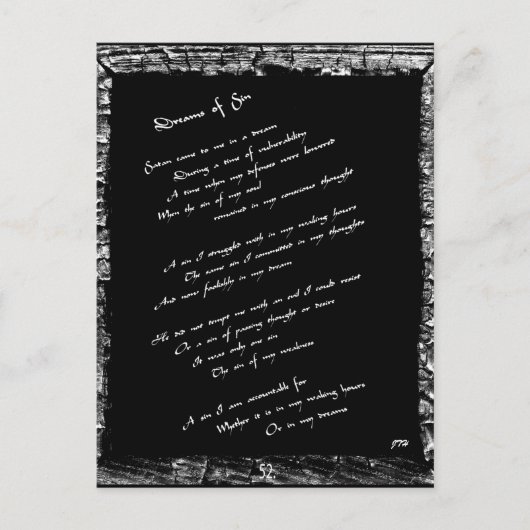 Dreams of Sin
Satan came to me in a dream
During a time of vulnerability
A time when my defenses were lowered
When the sin of my soul
remained in my conscious thought
A sin I struggled with in my waking hours
The same sin I committed in my thoughts
And now foolishly in my dream
He did not tempt me with an evil I could resist
Or a sin of passing thought or desire
It was only one sin
The sin of my weakness
A sin I am accountable for
Whether it is in my waking hours
Or in my dreams
JTH
52.